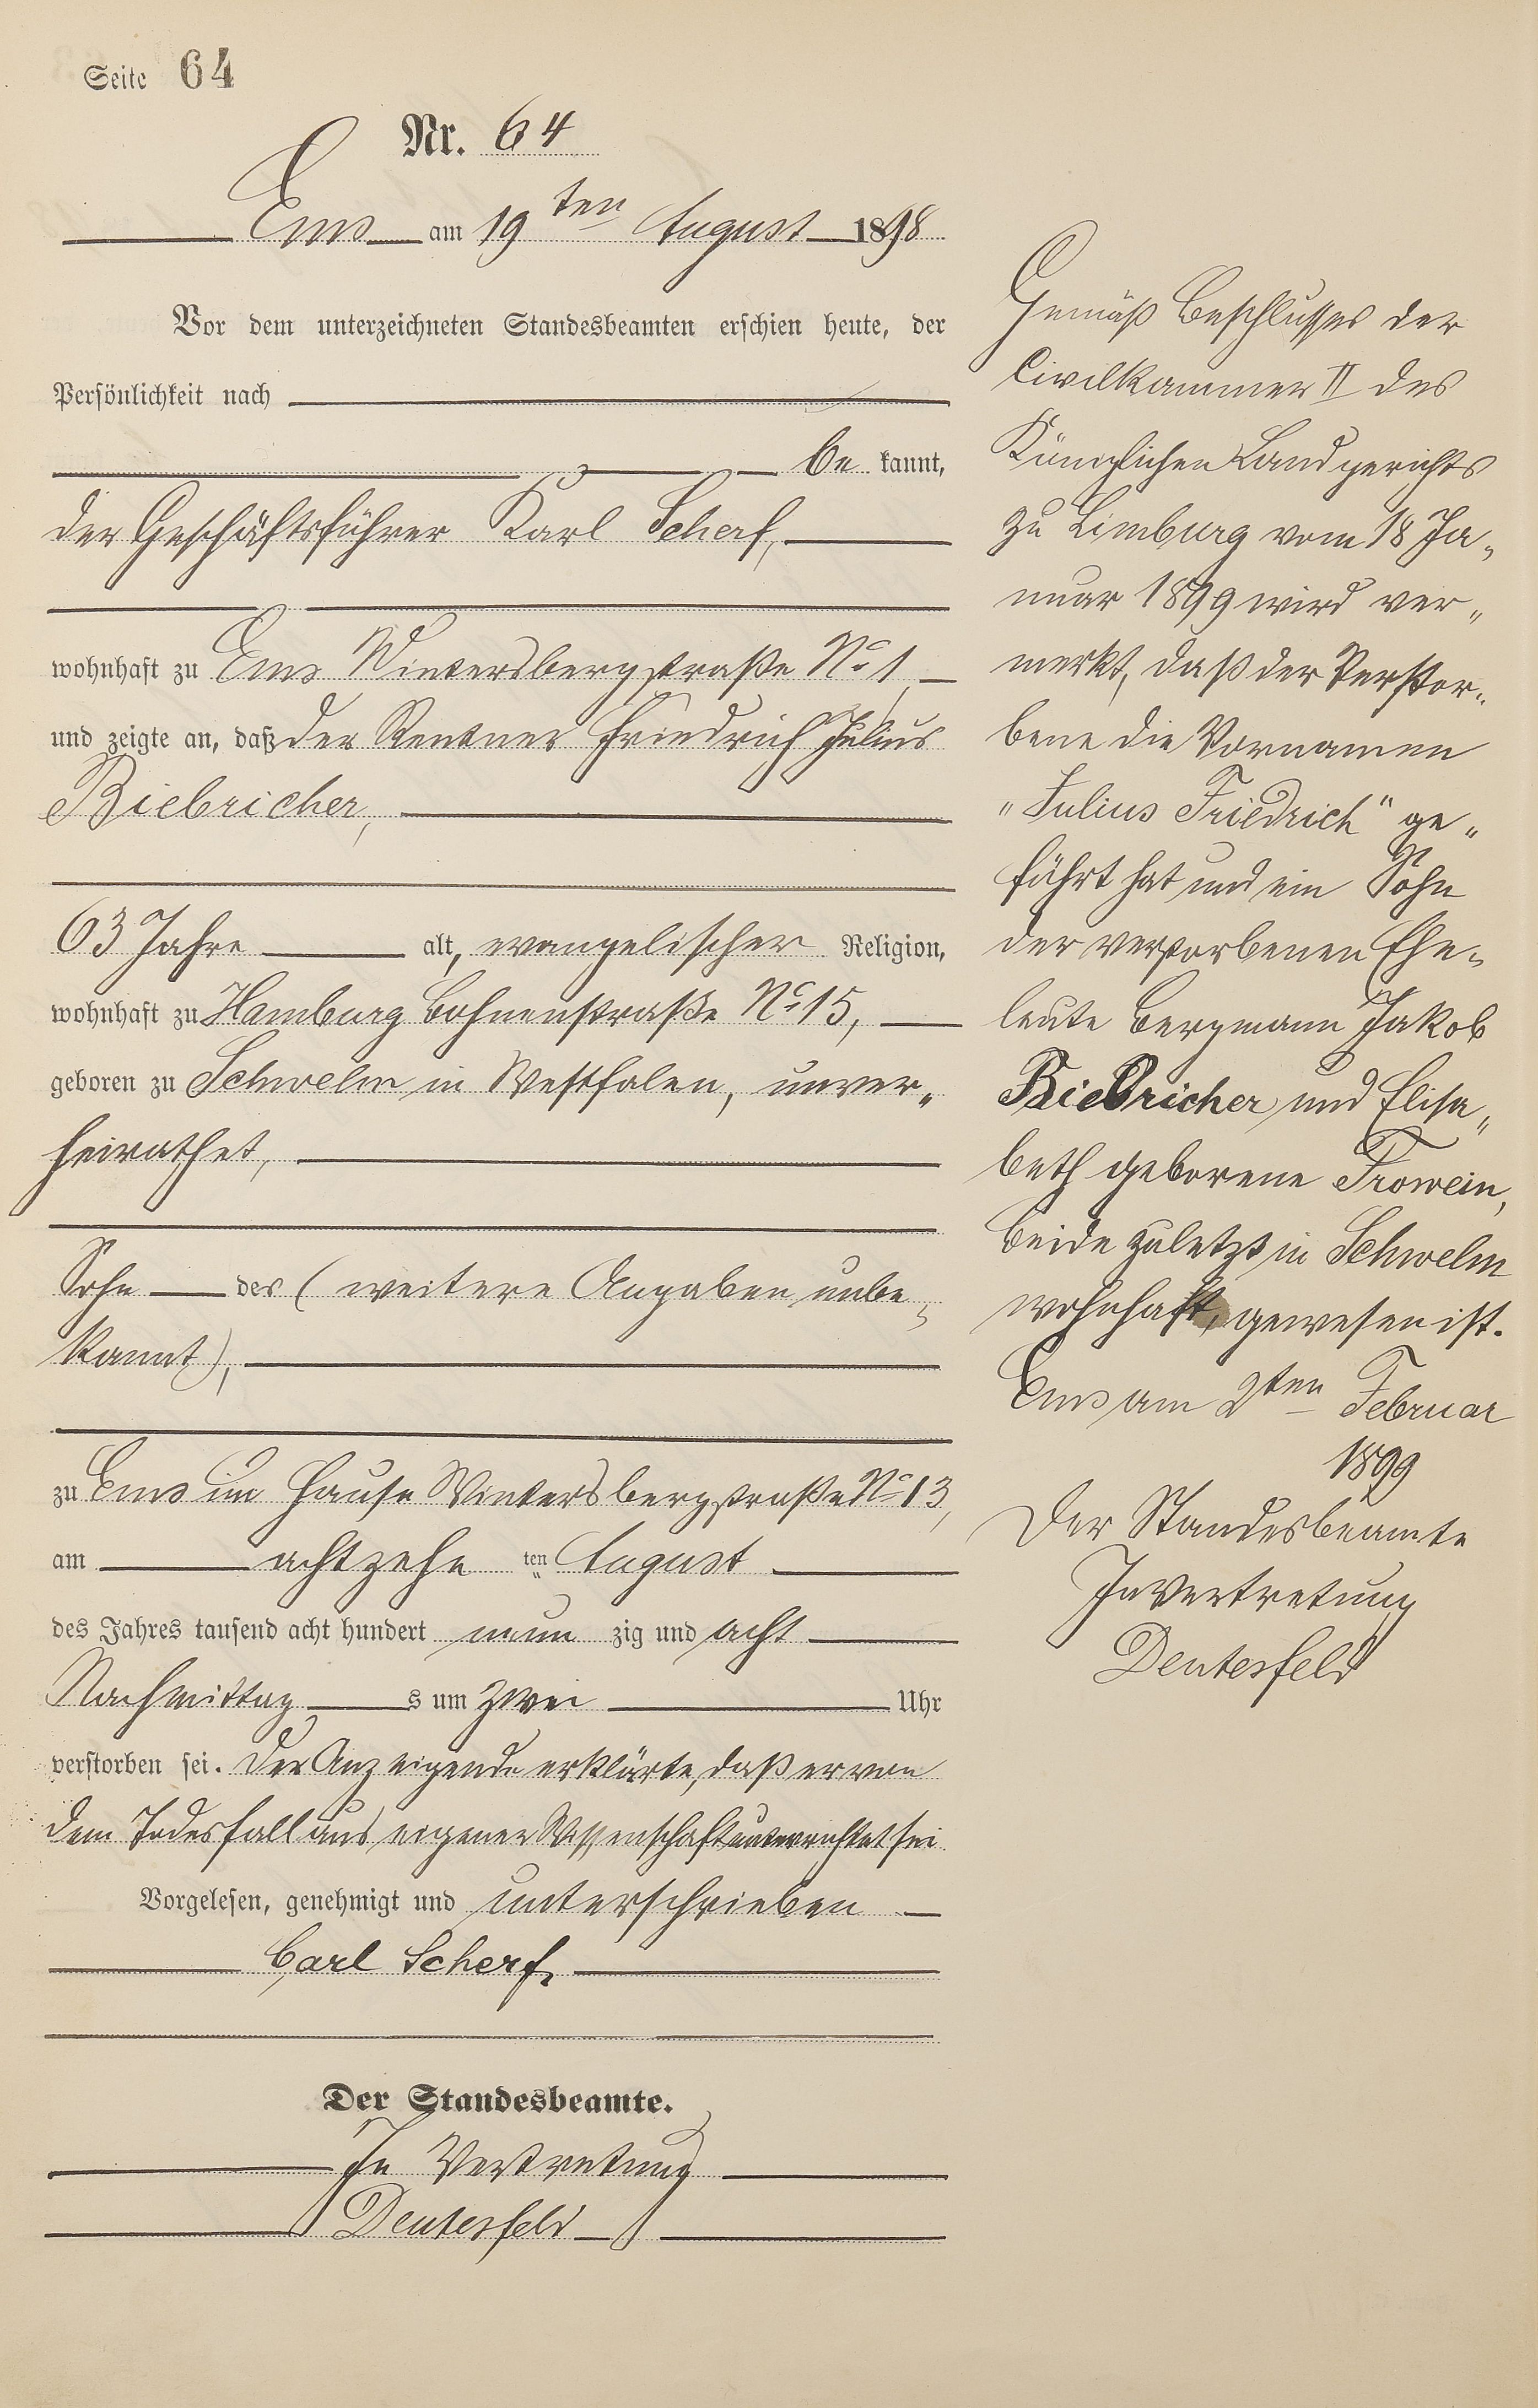 Seite 64
Nr. 64
Ems am 19ten August 1898
Vor dem unterzeichneten Standesbeamten erschien heute, der
Persönlichkeit nach
be kannt,
der Geschäftsführer Karl Scherf,
wohnhaft zu Ems Wintersbergstraße No 1
und zeigte an, daß der Rentner Friedrich Julius
Biebricher,
63 Jahre alt, evangelischer Religion,
wohnhaft zu Hamburg Bohnenstraße No 15,
geboren zu Schwelm in Westfalen, unver„
heirathet,
Sohn des (weitere Angaben unbe„
kannt),
zu Ems im Hause Wintersbergstraße No 13,
am achtzehn ten August
des Jahres tausend acht hundert neun zig und acht
Nachmittag s um zwei Uhr
verstorben sei. Der Anzeigende erklärte, daß er von
dem Todesfall aus eigener Wissenschaft unterrichtet sei
Vorgelesen, genehmigt und unterschrieben
Carl Scherf.
Der Standesbeamte.
In Vertretung
Deutesfeld
Gemäß Beschlusses der
Civilkammer II des
Königlichen Landgerichts
zu Limburg vom 18 Ja„
nuar 1899 wird ver„
merkt, daß der Verstor„
bene die Vornamen
"Julius Friedrich" ge„
führt hat und ein Sohn
der verstorbenen Ehe„
leute Bergmann Jakob
Biebricher und Elisa„
beth geborene Frowein,
beide zuletzt in Schwelm
wohnhaft, gewesen ist.
Ems am 2ten Februar
1899
Der Standesbeamte
In Vertretung
Deutesfeld